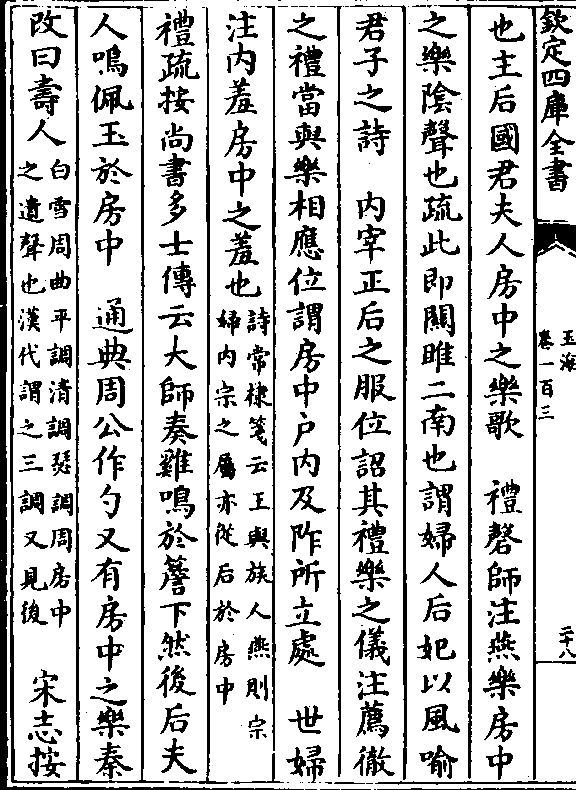 欽定四庫全書
玉海
卷一百三
二十八
也主后國君夫人房中之樂歌　禮磬師注燕樂房中
之樂陰聲也疏此即關雎二南也謂婦人后妃以風喻
君子之詩　内宰正后之服位詔其禮樂之儀注薦徹
之禮當與樂相應位謂房中户内及阼所立處　世婦
注内羞房中之羞也
詩常棣箋云王與族人燕則宗
婦内宗之屬亦從后於房中
禮疏按尚書多士傳云大師奏雞鳴於簷下然後后夫
人鳴佩玉於房中　通典周公作勺又有房中之樂秦
改曰壽人
白雪周曲平調清調瑟調周房中
之遺聲也漢代謂之三調又見後
宋志按